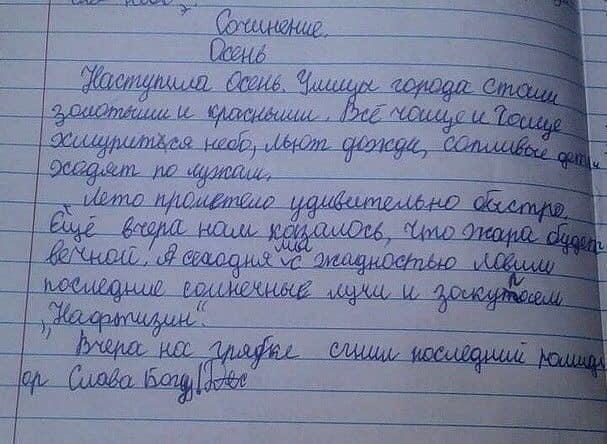 Сочинение.
Осень
Наступила Осень. Улицы города стали
золотыми и красными. Всё чаще и Чаще
хмуриться небо, льют дожди, сопливые дети
ходят по лужам.
Лето пролетело удивительно быстро.
Ещё вчера нам казалось, что жара будет
вечной. А сегодня мы с жадностью ловим
последние солнечные лучи и закупаем
"Нафтизин".
Вчера на грядке сгнил последний помид
ор Слава Богу!